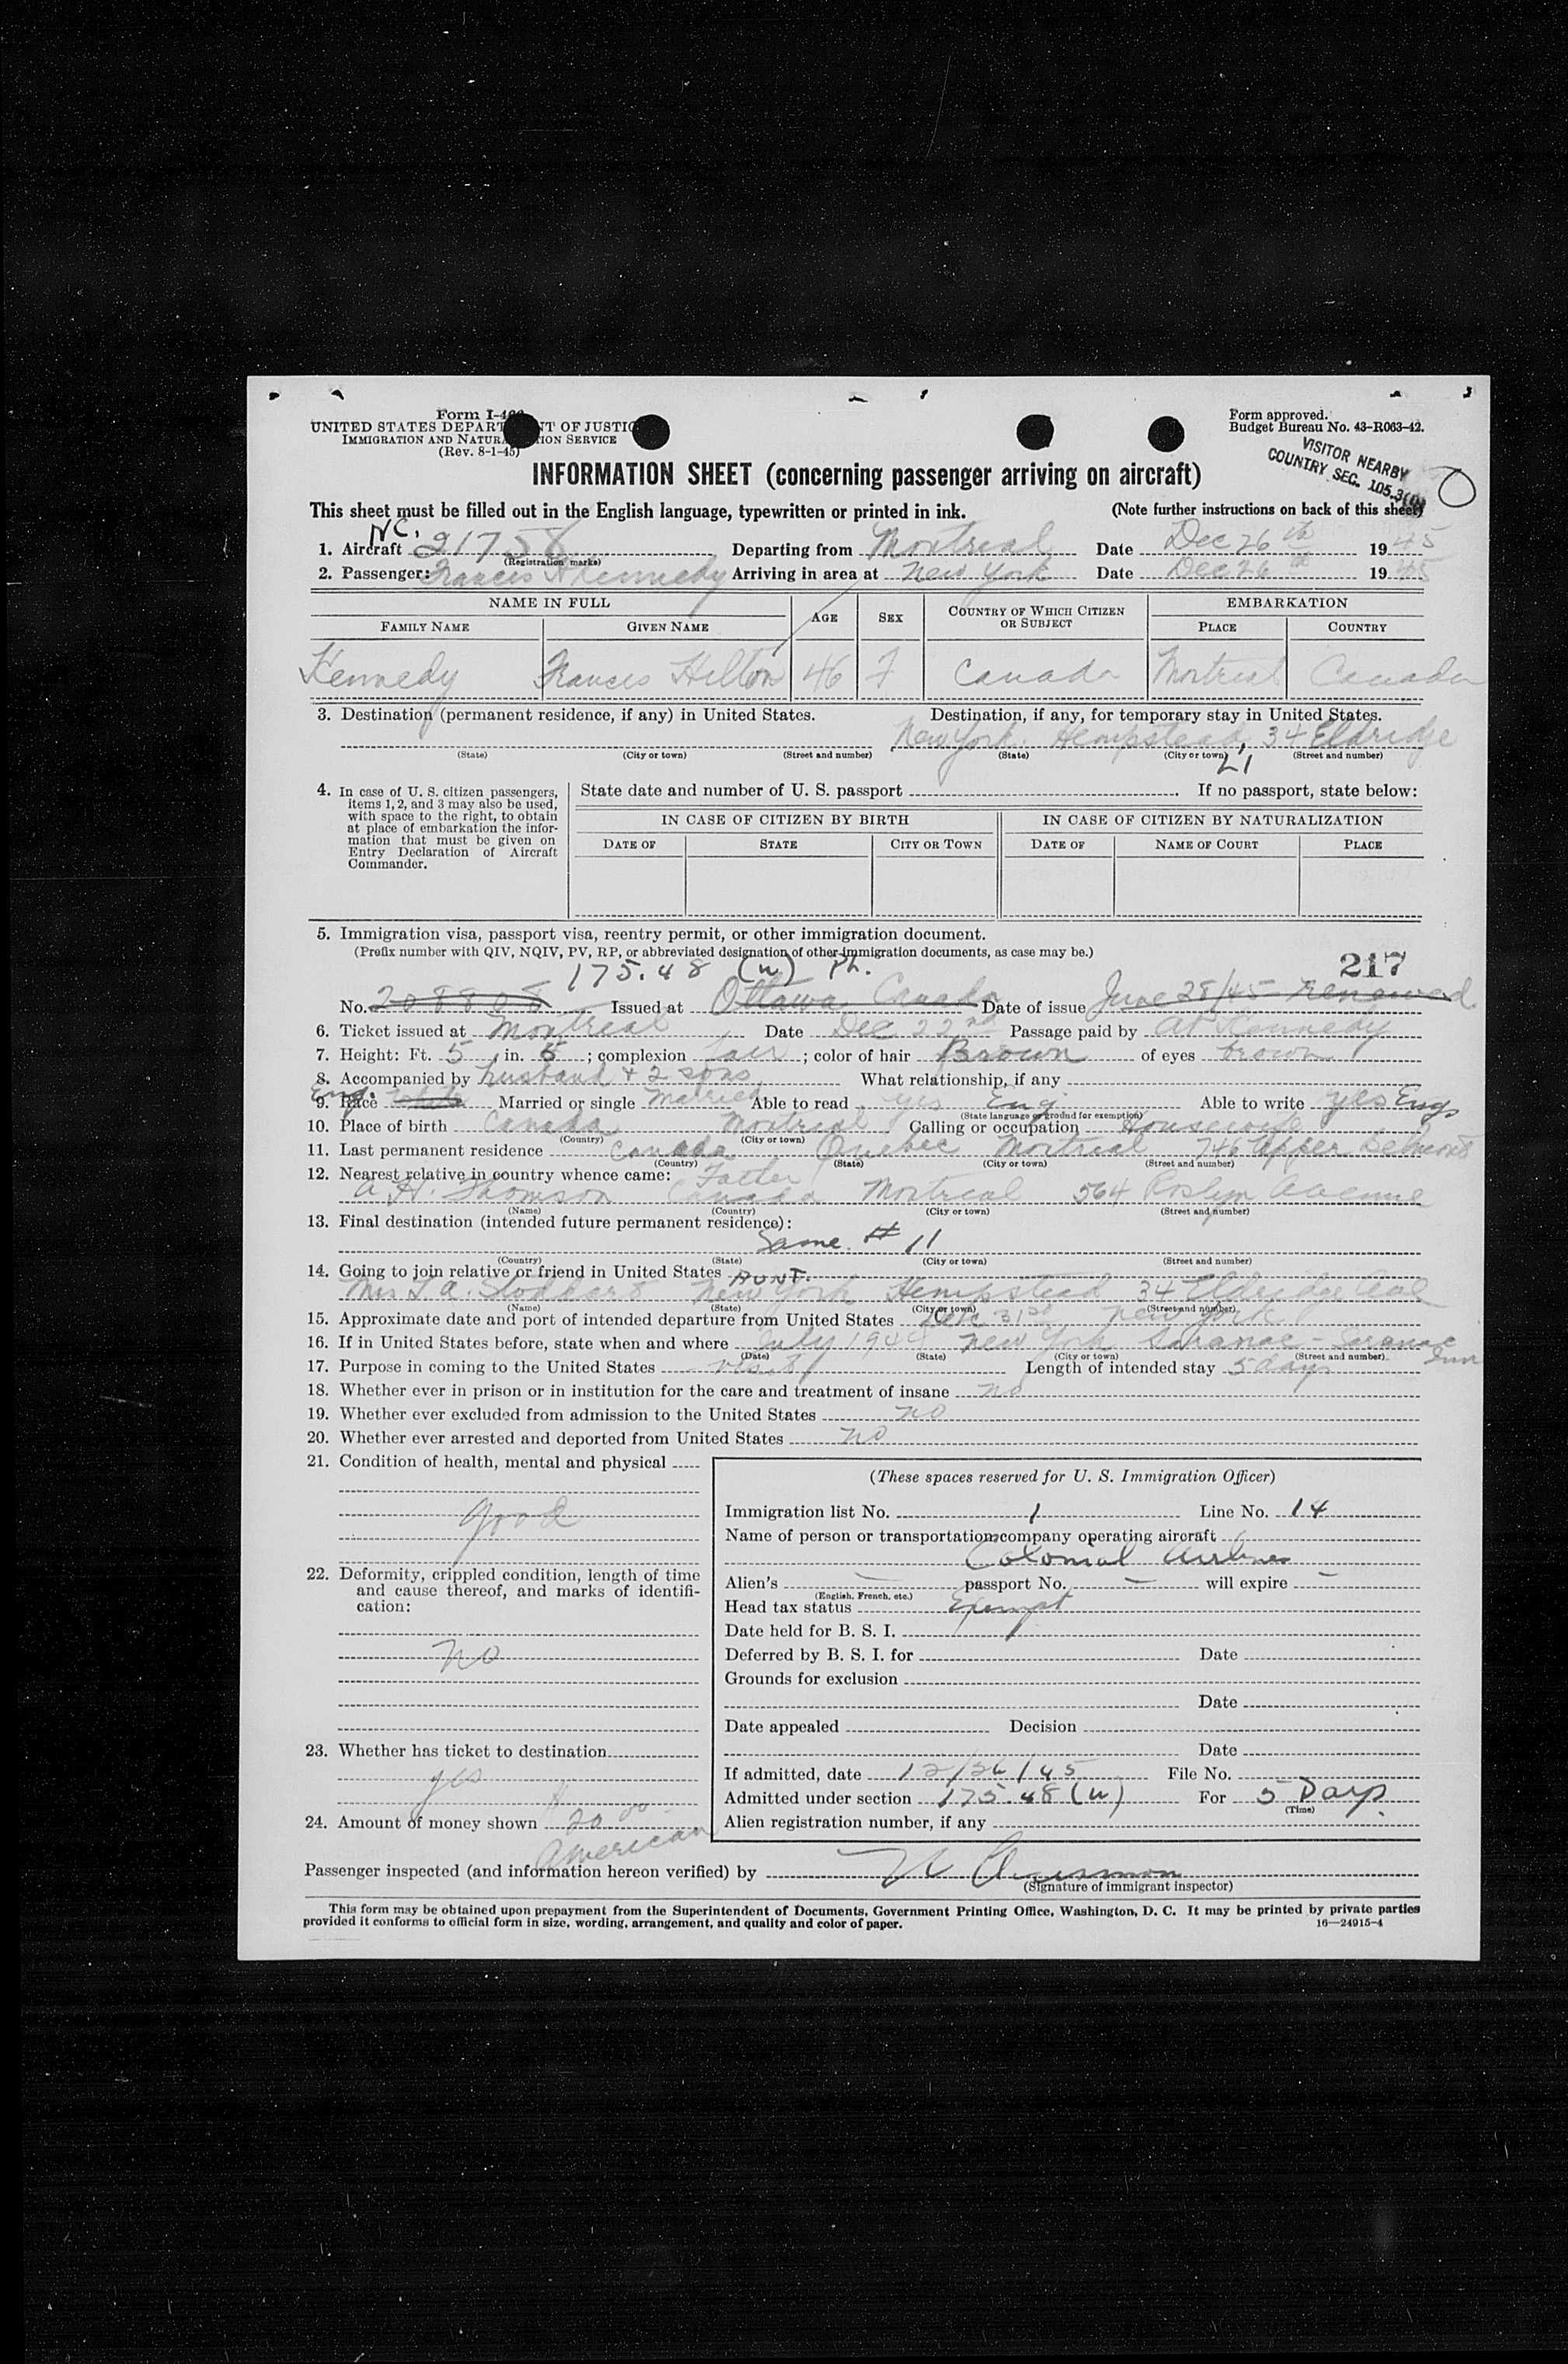 Form I-466
UNITED STATES DEPARTMENT OF JUSTICE
IMMIGRATION AND NATURALIZATION SERVICE
(Rev. 8-1-45)
Form approved.
Budget Bureau No. 43-R063-42.
VISITOR NEARBY
COUNTRY SEC. 105.3
INFORMATION SHEET (concerning passenger arriving on aircraft)
This sheet must be filled out in the English language, typewritten or printed in ink. (Note further instructions on back of this sheet)
NC.
1. Aircraft 21758 Departing from Montreal Date Dec 26th 1945
(Registration marks)
2. Passenger: Frances H Kennedy Arriving in area at New York Date Dec 26th 1945
NAME IN FULL AGE SEX COUNTRY OF WHICH CITIZEN OR SUBJECT EMBARKATION
FAMILY NAME GIVEN NAME PLACE COUNTRY
Kennedy Frances Hilton 46 F Canada Montreal Canada
3. Destination (permanent residence, if any) in United States. Destination, if any, for temporary stay in United States.
New York Hempstead, 34 Eldridge
(State) (City or town) (Street and number) (State) (City or town) (Street and number)
LI
4. In case of U. S. citizen passengers, items 1, 2, and 3 may also be used, with space to the right, to obtain at place of embarkation the information that must be given on Entry Declaration of Aircraft Commander.
State date and number of U. S. passport If no passport, state below:
IN CASE OF CITIZEN BY BIRTH IN CASE OF CITIZEN BY NATURALIZATION
DATE OF STATE CITY OR TOWN DATE OF NAME OF COURT PLACE
5. Immigration visa, passport visa, reentry permit, or other immigration document.
(Prefix number with QIV, NQIV, PV, RP, or abbreviated designation of other immigration documents, as case may be.)
175.48 (w) Ph. 217
No. 208808 Issued at Ottawa Canada Date of issue June 28/45 renewed
6. Ticket issued at Montreal Date Dec 22nd Passage paid by Kennedy
7. Height: Ft. 5, in. 5; complexion fair; color of hair Brown of eyes brown
8. Accompanied by husband + 2 sons What relationship, if any
Eng.
9. Race White Married or single Married Able to read yes Eng Able to write yes Eng
(State language or ground for exemption)
10. Place of birth Canada Montreal Calling or occupation Housewife
(Country) (City or town)
11. Last permanent residence Canada Quebec Montreal 746 Upper Belmont
(Country) (State) (City or town) (Street and number)
12. Nearest relative in country whence came: Father
A. H. Thomson Canada Montreal 564 Roslyn Avenue
(Name) (Country) (City or town) (Street and number)
13. Final destination (intended future permanent residence):
Same # 11
(Country) (State) (City or town) (Street and number)
14. Going to join relative or friend in United States AUNT.
Mrs Stoddard New York Hempstead 34 Eldridge Ave
(Name) (State) (City or town) (Street and number)
15. Approximate date and port of intended departure from United States Dec 31st New York
16. If in United States before, state when and where July 1944 New York Saranac - Saranac Inn
(Date) (State) (City or town) (Street and number)
17. Purpose in coming to the United States visit Length of intended stay 5 days
18. Whether ever in prison or in institution for the care and treatment of insane no
19. Whether ever excluded from admission to the United States no
20. Whether ever arrested and deported from United States no
21. Condition of health, mental and physical
good
22. Deformity, crippled condition, length of time and cause thereof, and marks of identification:
no
23. Whether has ticket to destination
yes
24. Amount of money shown 20.00
American
(These spaces reserved for U. S. Immigration Officer)
Immigration list No. 1 Line No. 14
Name of person or transportation company operating aircraft
Colonial Airlines
Alien's — passport No. — will expire —
(English, French, etc.)
Head tax status Exempt
Date held for B. S. I.
Deferred by B. S. I. for Date
Grounds for exclusion
Date
Date appealed Decision
Date
If admitted, date 12/26/45 File No.
Admitted under section 175.48 (w) For 5 Days
(Time)
Alien registration number, if any
Passenger inspected (and information hereon verified) by
(Signature of immigrant inspector)
This form may be obtained upon prepayment from the Superintendent of Documents, Government Printing Office, Washington, D. C. It may be printed by private parties
provided it conforms to official form in size, wording, arrangement, and quality and color of paper. 16—24915-4